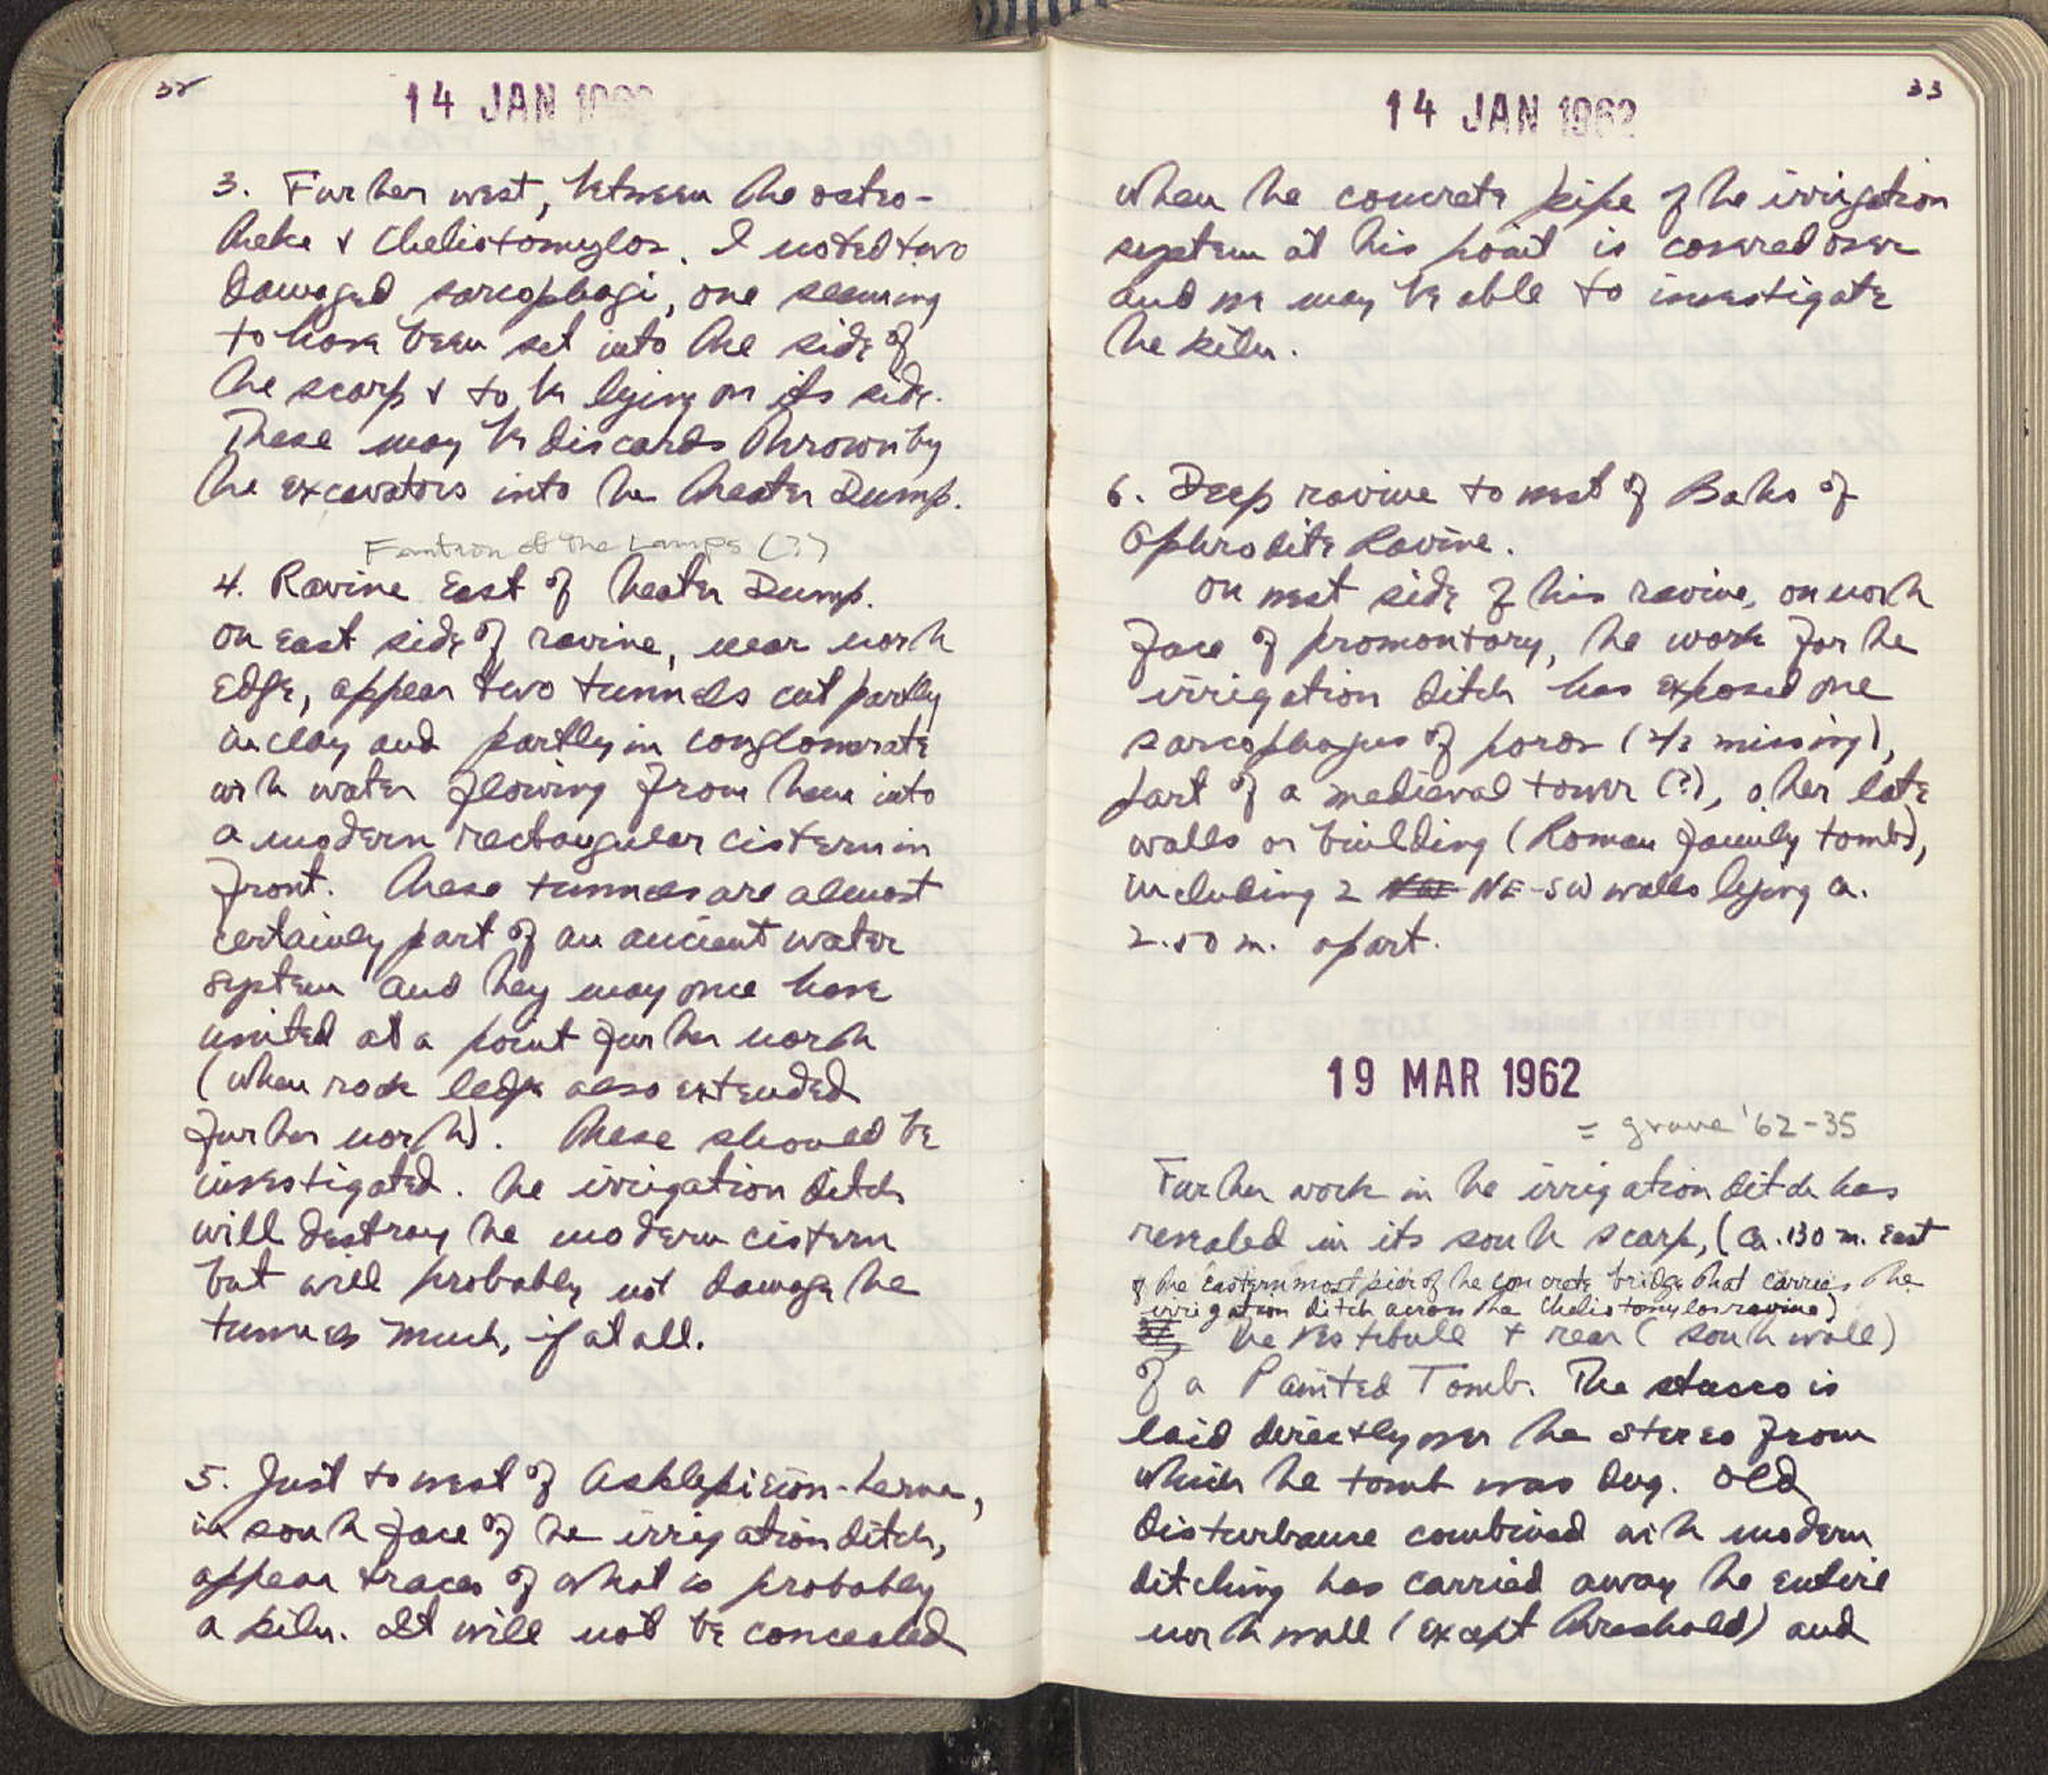 32
14 JAN 1962
3. Further west, between the osteo-
theke & Cheliotomylos, I noted two
damaged sarcophagi, one seeming
to have been set into the side of
the scarp & to be lying on its side.
These may be discards thrown by
the excavators into the Theater Dump.
Fountain of the Lamps (?)
4. Ravine East of Theater Dump.
on East side of ravine, near north
edge, appear two tunnels cut partly
in clay and partly in conglomerate
with water flowing from them into
a modern rectangular cistern in
front. These tunnels are almost
certainly part of an ancient water
system and they may once have
united at a point further north
(when rock ledge also extended
further north). These should be
investigated. The irrigation ditch
will destroy the modern cistern
but will probably not damage the
tunnels much, if at all.
5. Just to west of Asklepieion-Lerna,
in south face of the irrigation ditch,
appear traces of what is probably
a kiln. It will not be concealed
33
14 JAN 1962
when the concrete pipe of the irrigation
system at this point is covered over
and we may be able to investigate
the kiln.
6. Deep ravine to west of Baths of
Aphrodite Ravine.
on west side of this ravine, on north
face of promontory, the work for the
irrigation ditch has exposed one
sarcophagus of poros (1/2 missing),
part of a medieval tower (?), other late
walls or building (Roman family tomb),
including 2 NE-SW walls lying ca.
2.50 m. apart.
19 MAR 1962
= grave '62-35
Further work in the irrigation ditch has
revealed in its south scarp, (ca. 130 m. East
of the easternmost pier of the concrete bridge that carries the
irrigation ditch across the Cheliotomylos ravine)
the vestibule + rear (south wall)
of a Painted Tomb. The stucco is
laid directly over the stereo from
which the tomb was dug. Old
disturbance combined with modern
ditching has carried away the entire
north wall (except threshold) and